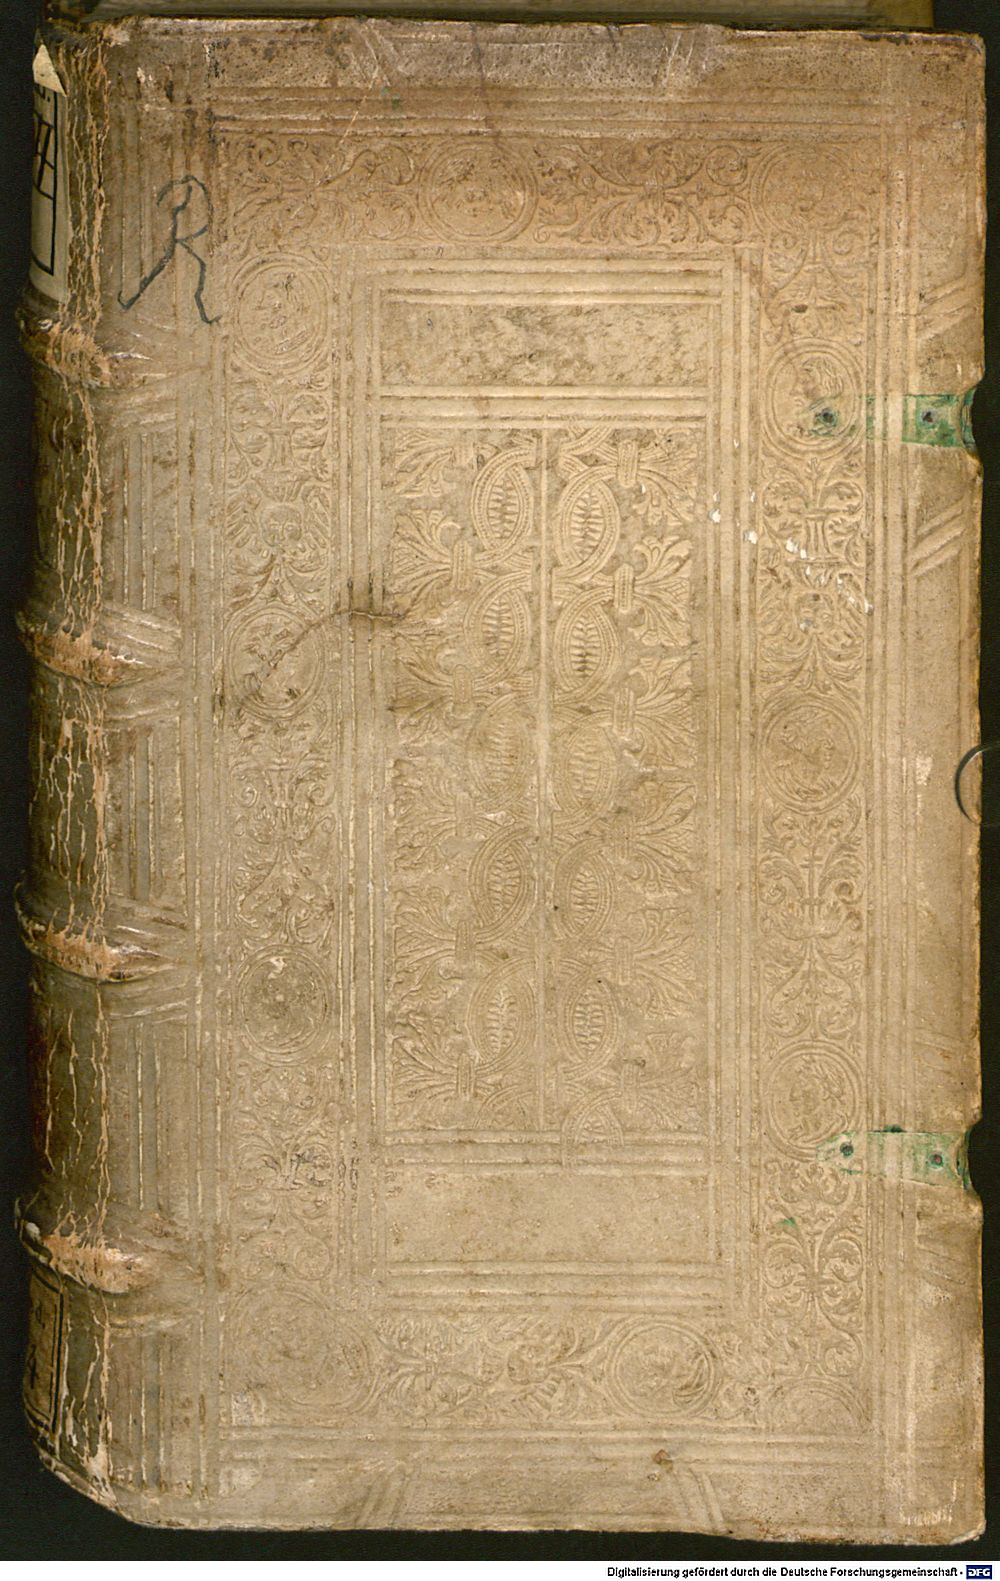 R
Digitalisierung gefördert durch die Deutsche Forschungsgemeinschaft - DFG